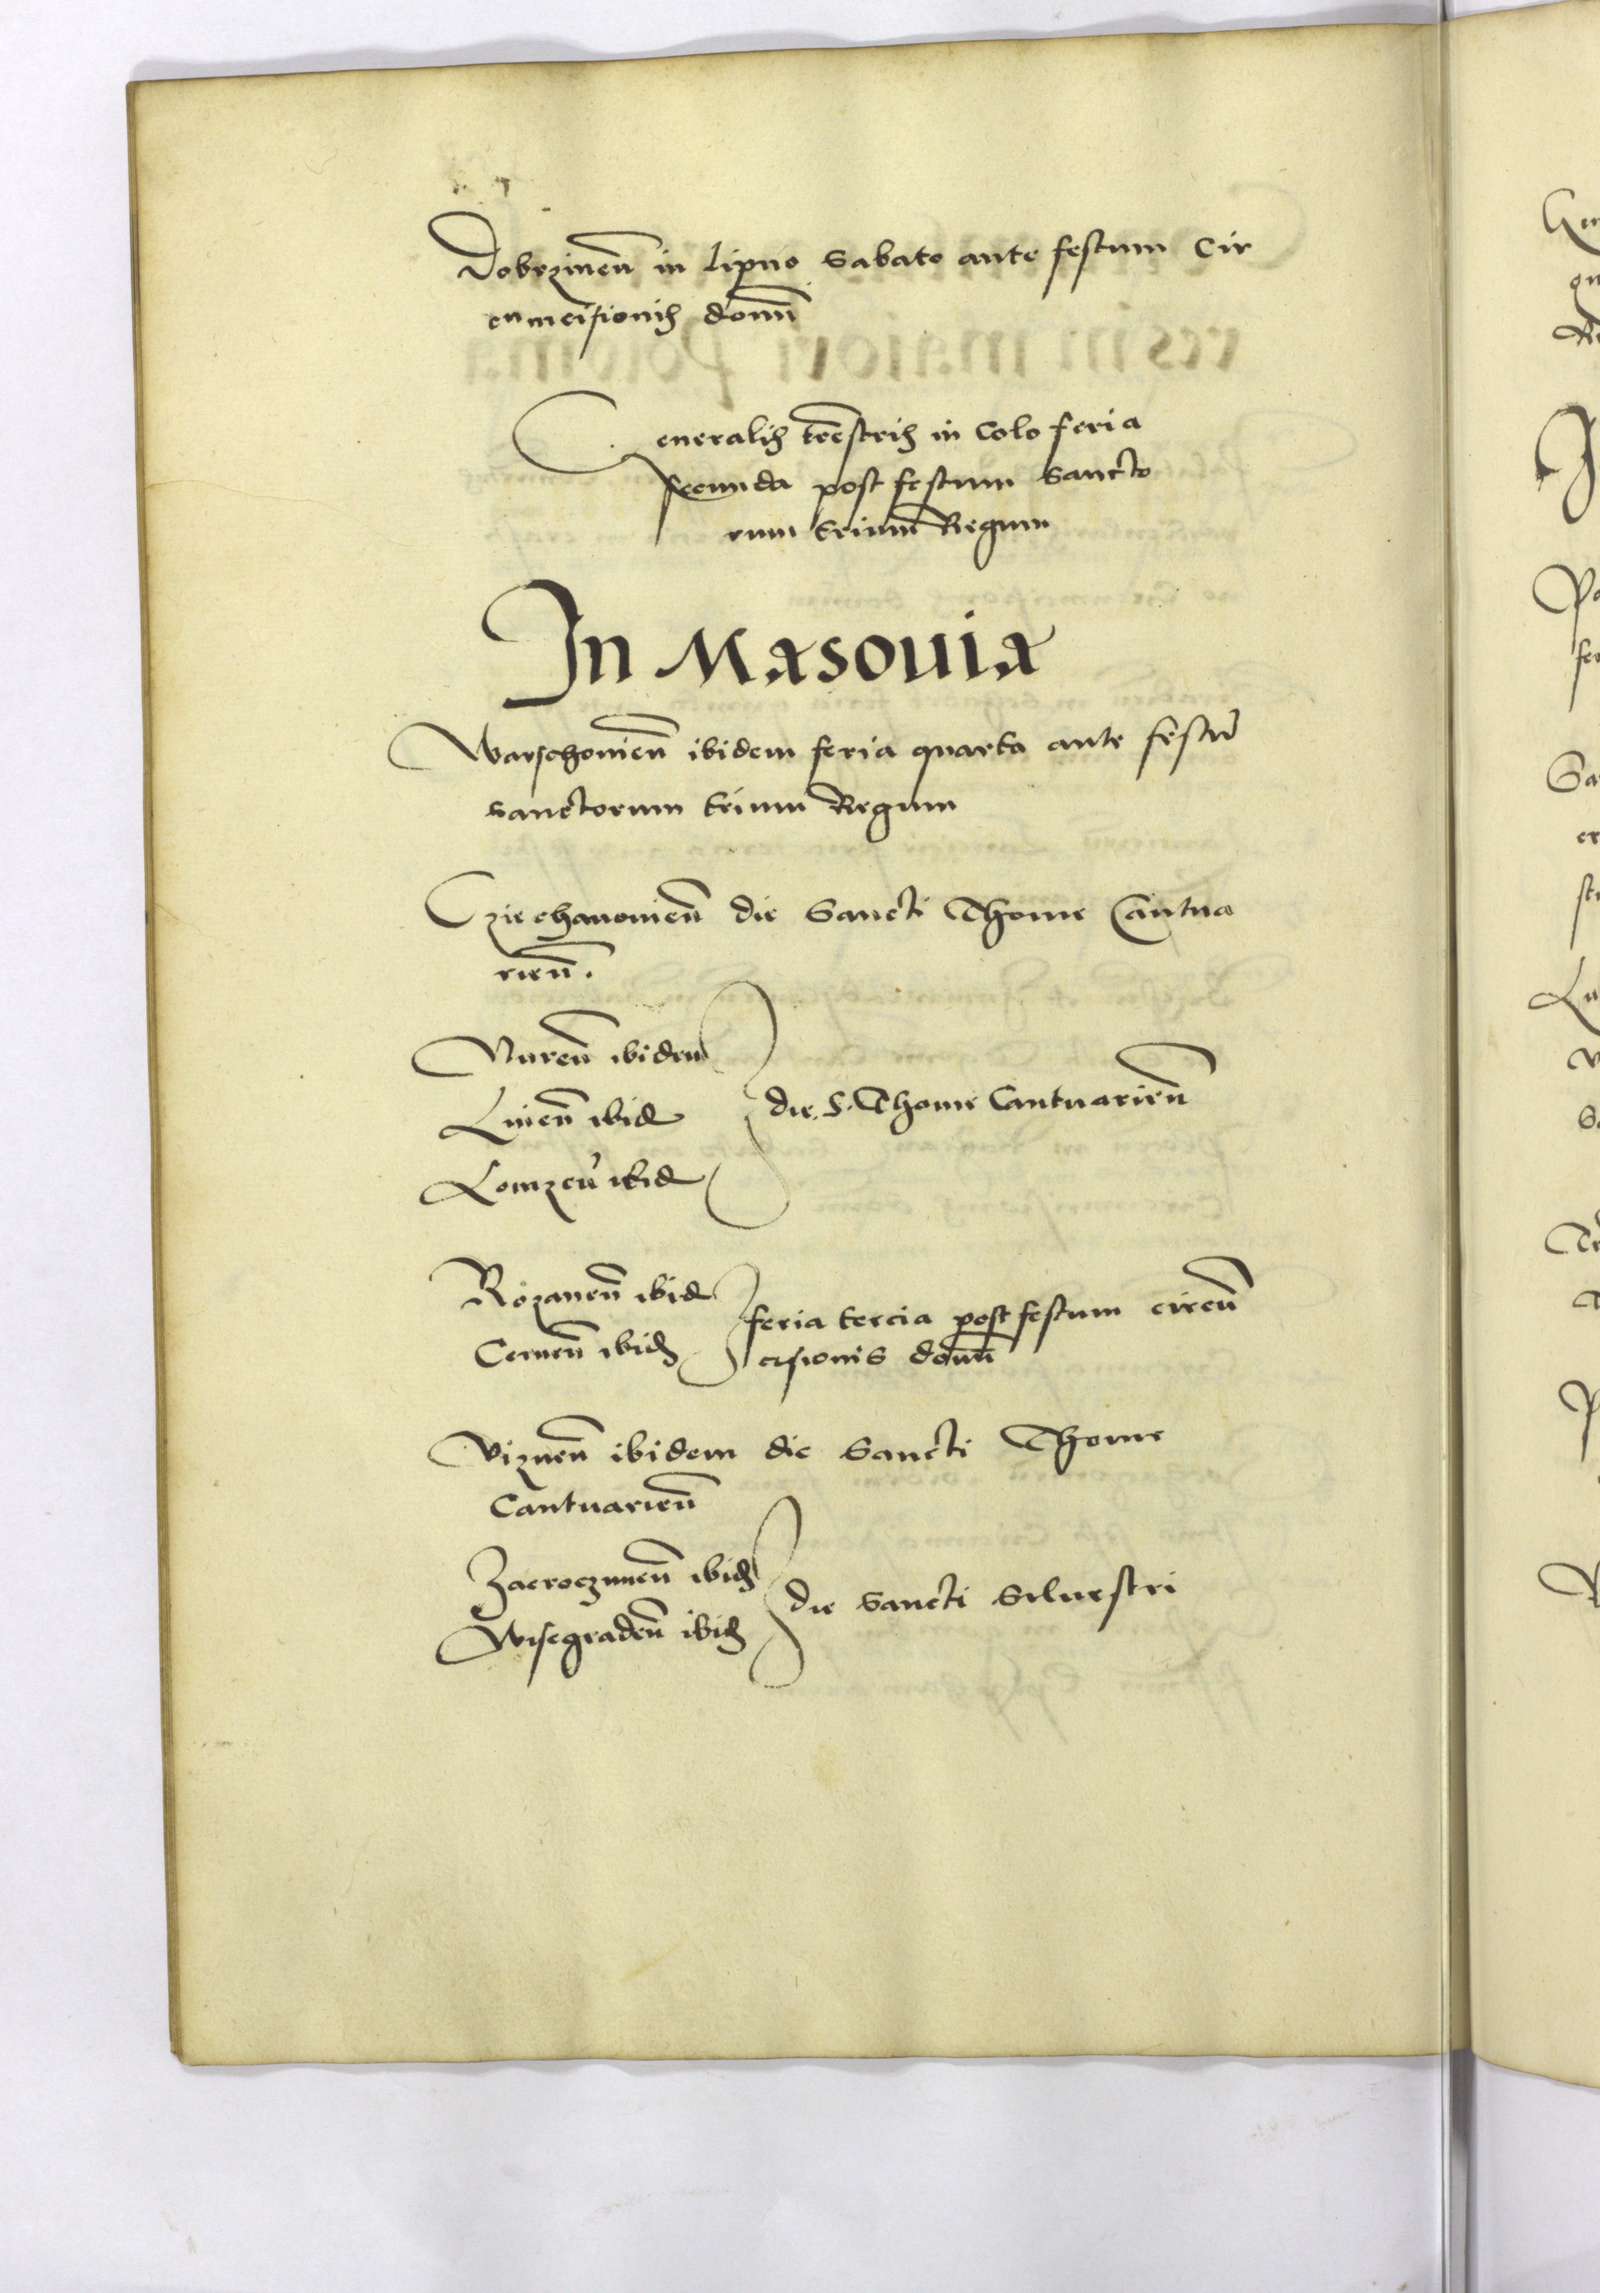 Dobrzinen̄ in Lipno Sabato ante festum Cir
cumcisionis domī
Generalis tr̄estris in Colo feria
secunda post festum Sancto
rum trium Regum
In Masouia
Warschouien̄ ibidem feria quarta ante festū
Sanctorum trium Regum
Cziechanouien̄ die Sancti Thome Cantua
rien̄.
Nuren̄ ibidem
Liuen̄ ibid
Lomzen̄ ibid
die S. Thome Cantuarien̄
Rozanen̄ ibid
Cernen̄ ibid
feria tercia post festum circū
cisionis domī
Viznen̄ ibidem die Sancti Thome
Cantuarien̄
Zacroczimen̄ ibid
Wisegraden̄ ibid
die Sancti Siluestri